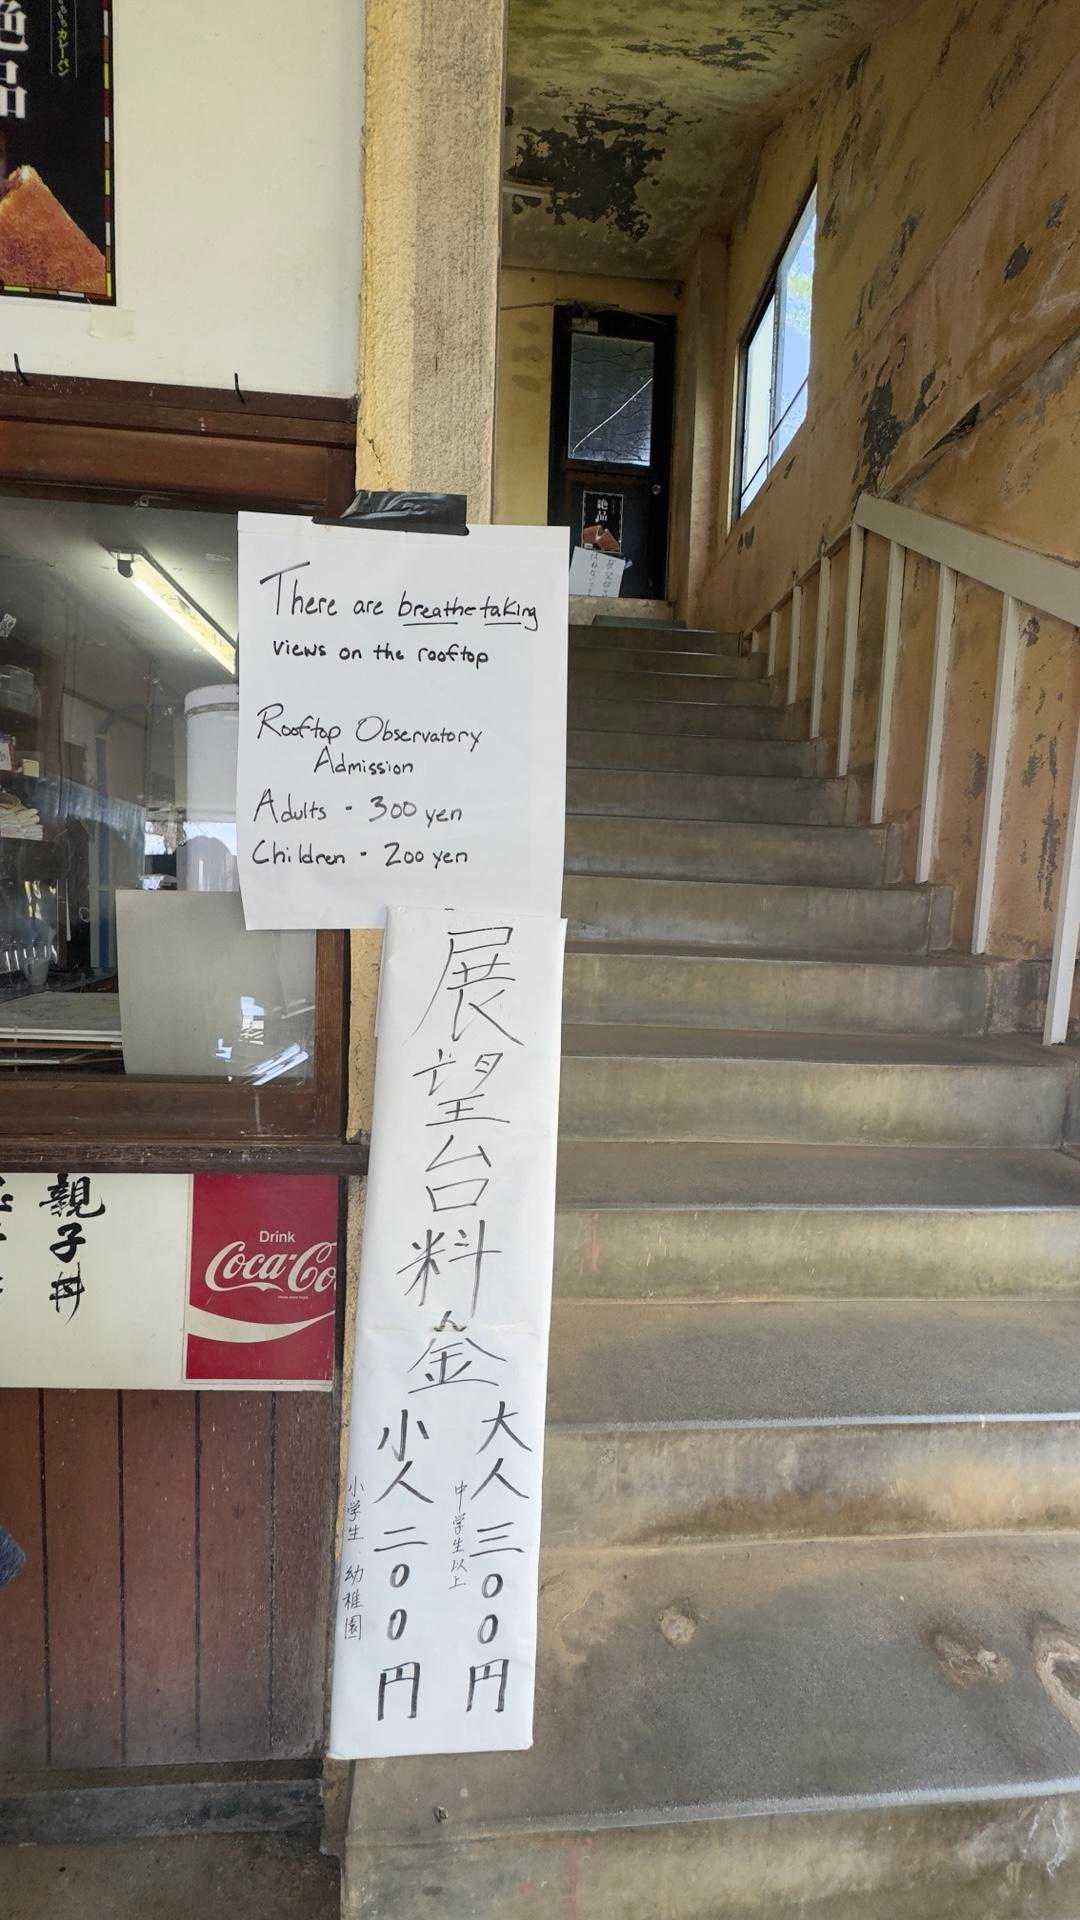 カレーパン
絶品
絶品
There are breathe taking
views on the rooftop
Rooftop Observatory
Admission
Adults - 300 yen
Children - 200 yen
展望台料金
大人 三〇〇円
中学生以上
小人 二〇〇円
小学生 幼稚園
親子丼
Drink
Coca-Co